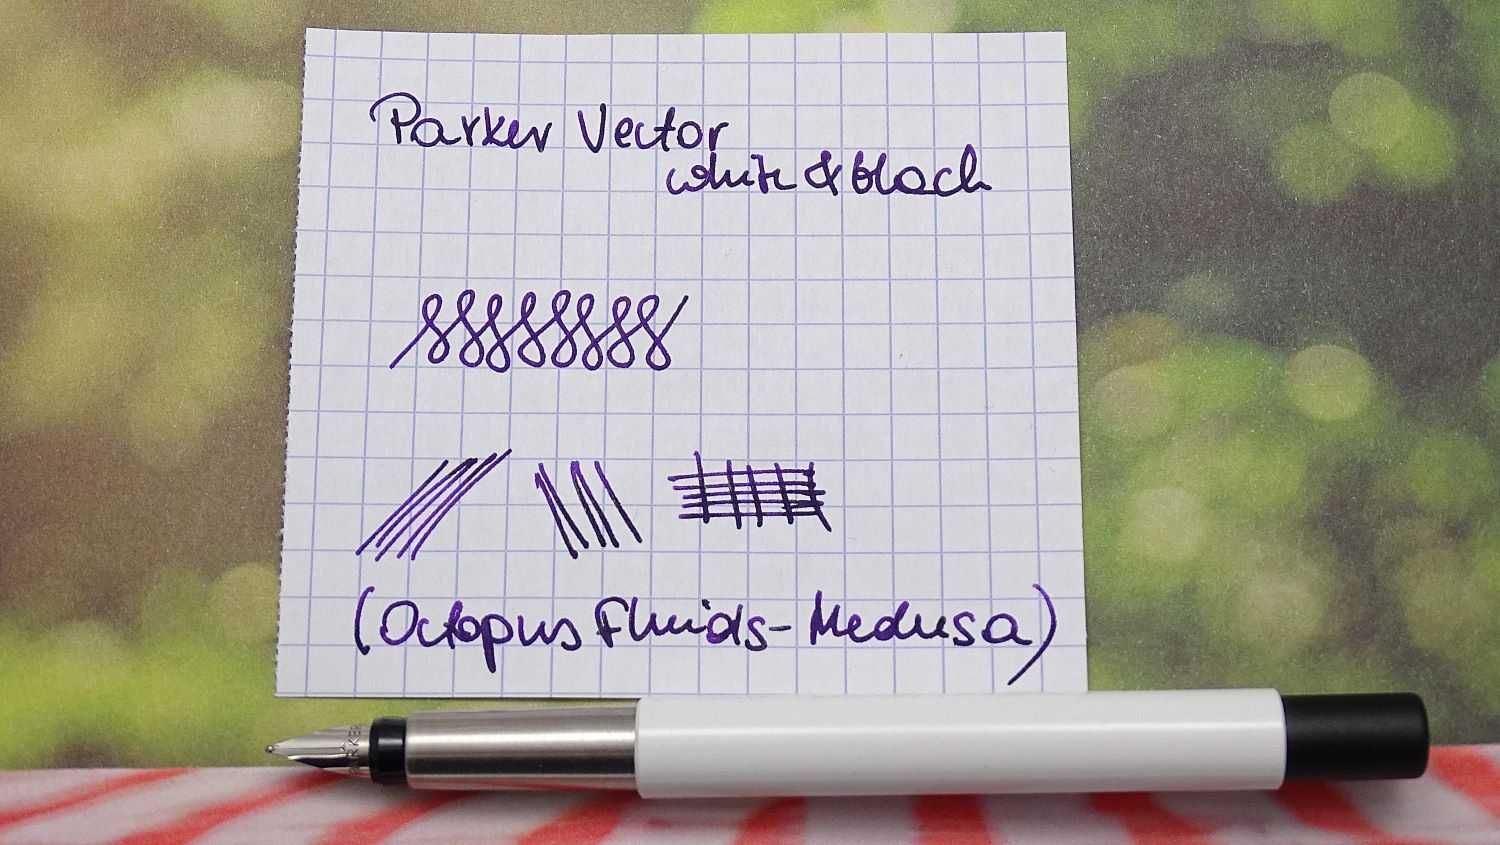 Parker Vector
white & black
(Octopus Fluids - Medusa)
PARKER